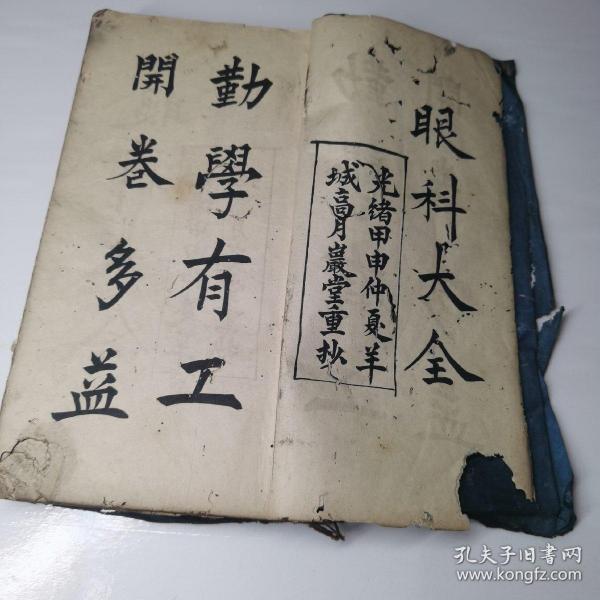 眼科大全
光緒甲申仲夏羊
城高月巖堂重抄
勤學有工
開卷多益
孔夫子旧书网
www.kongfz.com